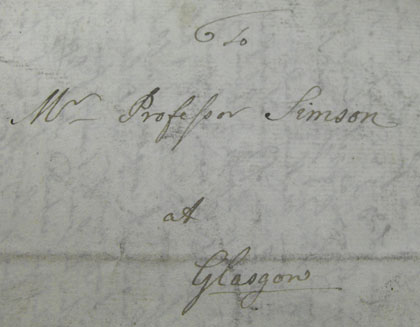 To
Mr Professor Simson
at
Glasgow